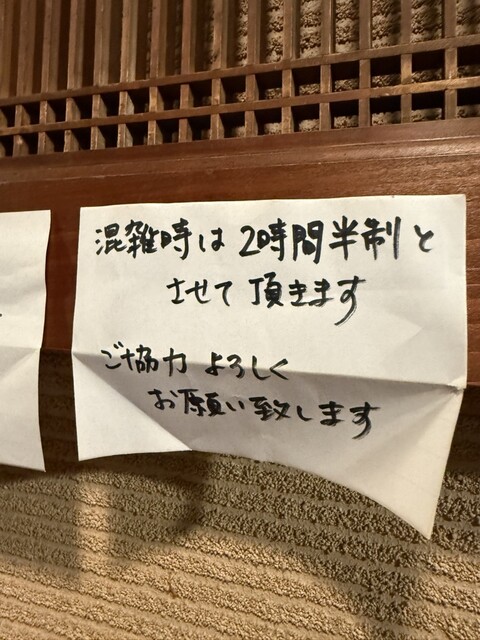 混雑時は 2時間半制と
させて頂きます
ご協力よろしく
お願い致します